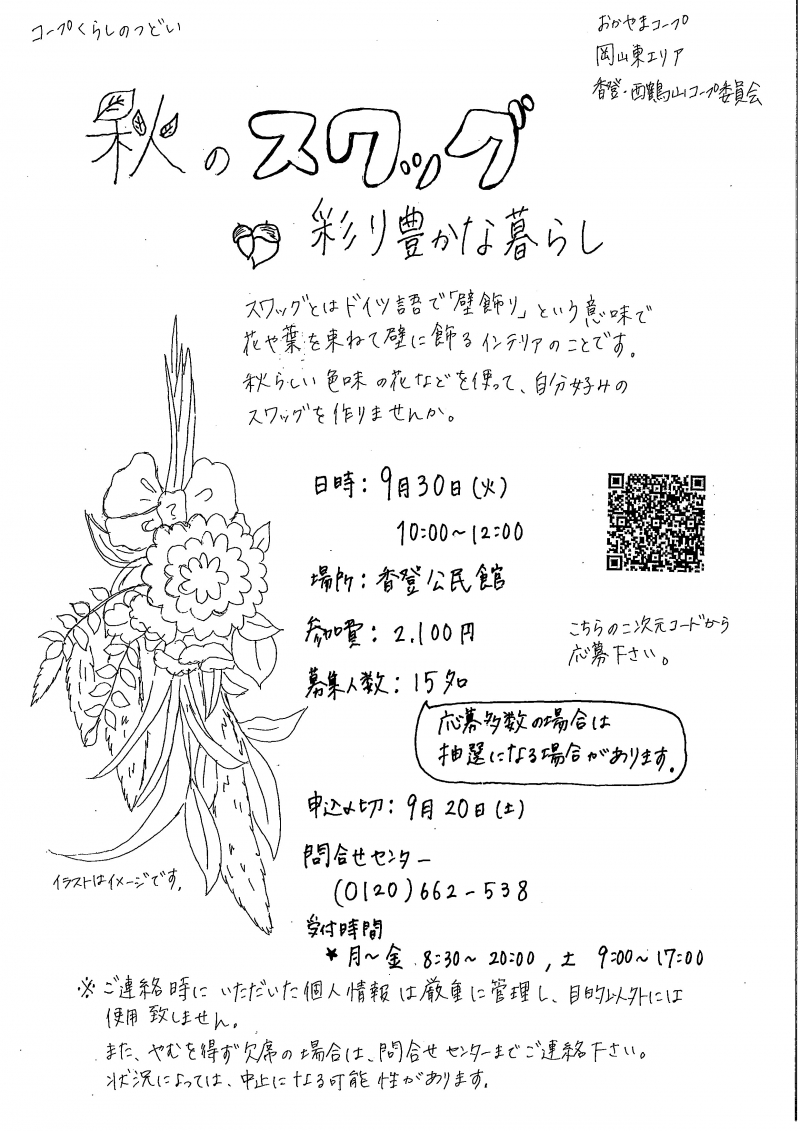 コープくらしのつどい
おかやまコープ
岡山東エリア
香登・西鶴山コープ委員会
秋のスワッグ
彩り豊かな暮らし
スワッグとはドイツ語で「壁飾り」という意味で
花や葉を束ねて壁に飾るインテリアのことです。
秋らしい色味の花などを使って、自分好みの
スワッグを作りませんか。
日時：9月30日(火)
10:00～12:00
場所：香登公民館
参加費：2,100円
募集人数：15名
応募多数の場合は
抽選になる場合があります。
こちらの二次元コードから
応募下さい。
申込〆切：9月20日(土)
問合せセンター
(0120)662-538
受付時間
★月～金 8:30～20:00，土 9:00～17:00
イラストはイメージです。
※ご連絡時にいただいた個人情報は厳重に管理し、目的以外には
使用致しません。
また、やむを得ず欠席の場合は、問合せセンターまでご連絡下さい。
状況によっては、中止になる可能性があります。